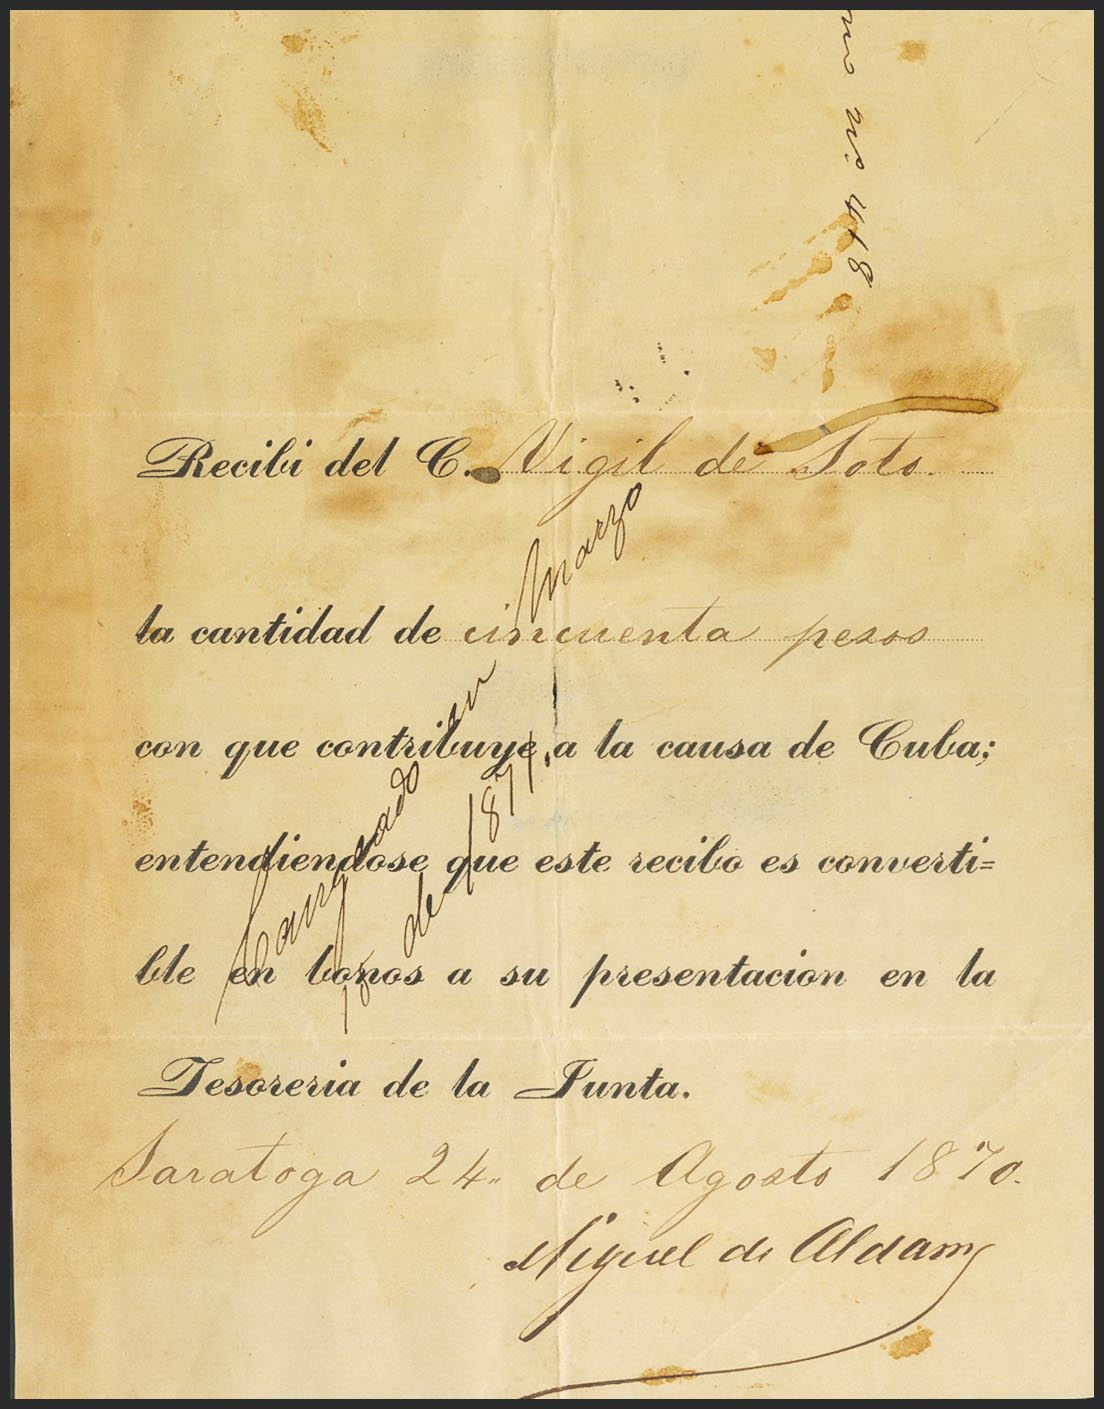 nº 418
Recibi del C. Vigil de Soto.
la cantidad de cincuenta pesos
con que contribuye a la causa de Cuba;
entendiendose que este recibo es converti=
ble en bonos a su presentacion en la
Tesoreria de la Junta.
Saratoga 24" de Agosto 1870.
Miguel de Aldama
Cangeado en Marzo
de 1871.